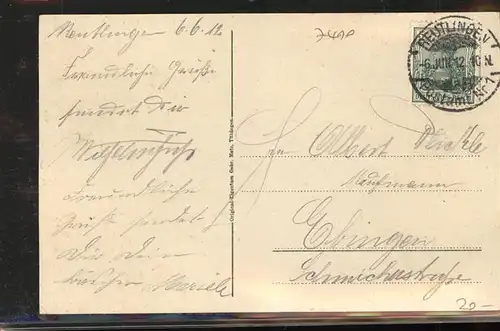 Reutlingen 6.6.12
Freundliche Grüße
sendet Dir
Freundliche
Grüße sendet
Dir Dein
Mariele
Original-Eigentum Gebr. Metz, Tübingen.
REUTLINGEN
-6.JUN.12. 10 N.
Postamt Nr 1
Albert
Kaufmann
Ebingen
Schmiechastraße
20-